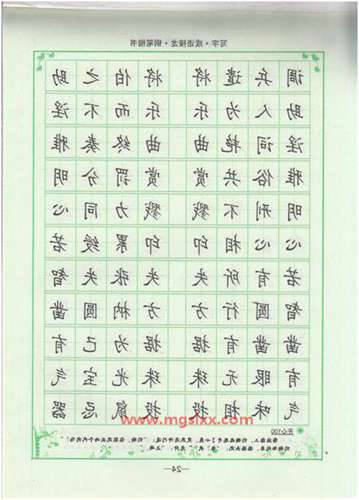 写字·成语接龙·钢笔楷书
调兵遣将 将伯之助
助人为乐 乐而不淫
淫词艳曲 曲终奏雅
雅俗共赏 赏罚分明
明刑不戮 戮力同心
心心相印 印累绶若
若有所失 失张失智
智圆行方 方枘圆凿
凿凿有据 据为己有
有眼无珠 珠光宝气
气味相投 投鼠忌器
www.mgsixx.com
开心100
—24—